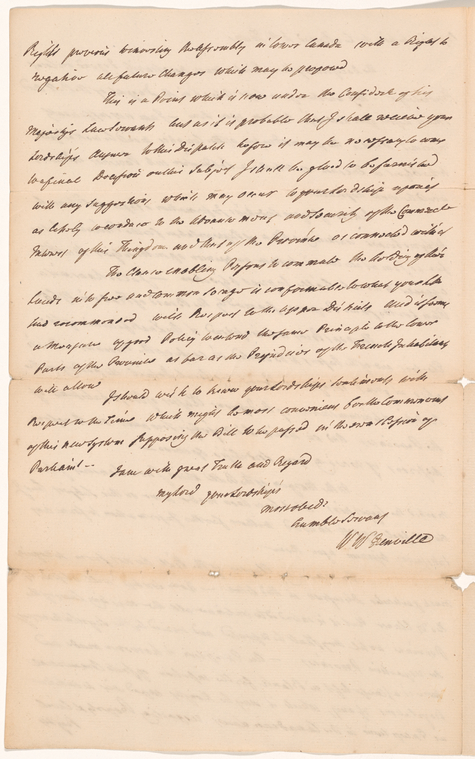 Right previous vesting the Assembly in lower Canada with a Right to
negative all future Changes which may be proposed
This is a Point which is now under the Considn of his
Majesty's Law Servants but as it is probable that I shall receive your
Lordship's Answer to this dispatch before it may be necessary to come
to a final Decision on this Subject I shall be glad to be furnished
with any suggestions which may occur to your Lordship upon it
as likely to conduce to the Advancement and Security of the Commercial
Interest of this Kingdom and that of the Province as connected with it
The Clause enabling Persons to commute the holding of their
Lands into free and Common Soccage is conformable to what your Lordp
had recommended with Respect to the upper Districts and it seems
a Measure of good Policy to extend the same Principle to the lower
Parts of the Province as far as the Prejudices of the French Inhabitants
will allow
I should wish to know your Lordship's sentiments with
Respect to the Time which might be most convenient for the Commencemt
of this new System supposing the Bill to be passed in the ensuing Session of
Parliamt --
I am with great Truth and Regard
My Lord your Lordship's
most obedt
humble Servant
W W Grenville